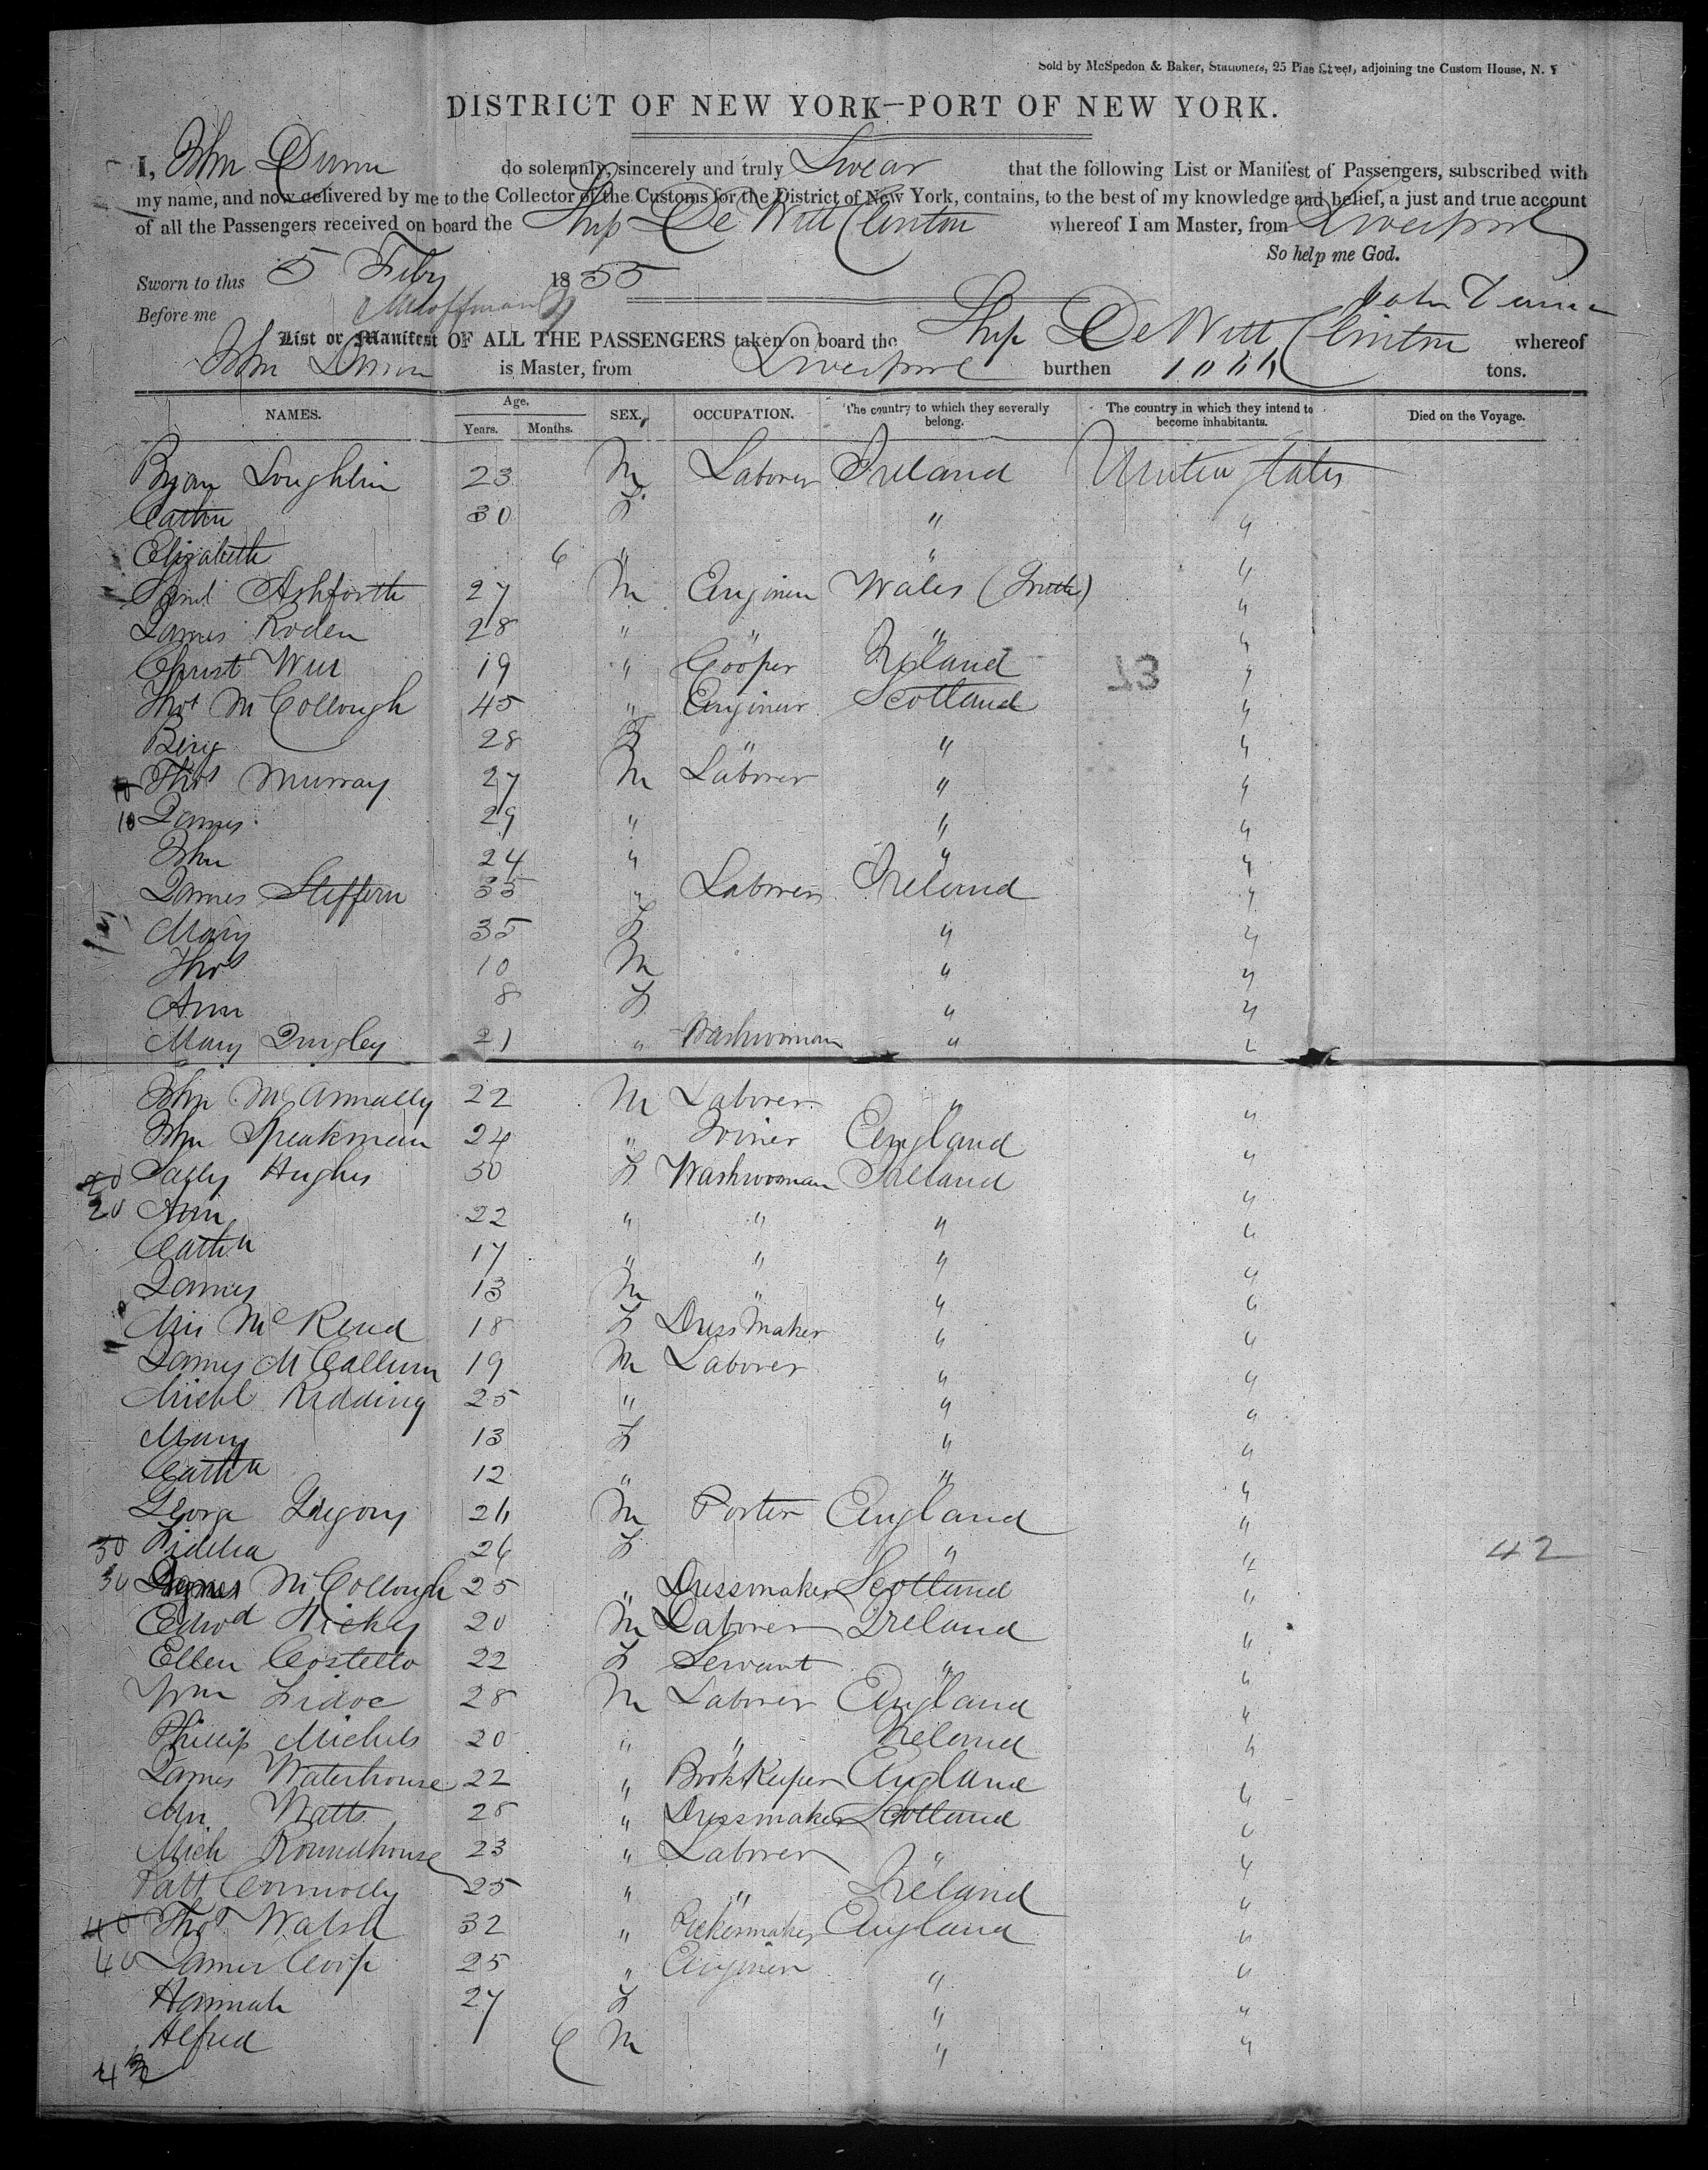 Sold by McSpedon & Baker, Stationers, 25 Pine Street, adjoining the Custom House, N. Y
DISTRICT OF NEW YORK—PORT OF NEW YORK.
I, John Dunn do solemnly, sincerely and truly Swear that the following List or Manifest of Passengers, subscribed with
my name, and now delivered by me to the Collector of the Customs for the District of New York, contains, to the best of my knowledge and belief, a just and true account
of all the Passengers received on board the Ship De Witt Clinton whereof I am Master, from Liverpool
So help me God.
Sworn to this 5 Feby 1855
Before me
List or Manifest OF ALL THE PASSENGERS taken on board the Ship De Witt Clinton whereof
John Dunn is Master, from Liverpool burthen tons.
NAMES. Age. SEX. OCCUPATION. The country to which they severally belong. The country in which they intend to become inhabitants. Died on the Voyage.
Years. Months.
Bryan Loughlin 23 M Laborer Ireland United States
Cathn 30 F " "
Elizabeth 6 " " "
Saml Ashforth 27 M Enginer Wales "
James Roden 28 " " " "
Christ 19 " Cooper Ireland "
Thos McCollough 45 " Enginer Scotland "
28 F " " "
10 Thos Murray 27 M Laborer " "
10 James 29 " " "
John 24 " " "
James Steffern 35 " Laborer Ireland "
Mary 35 F " "
Thos 10 M " "
Ann 8 F " "
Mary Quigley 21 " Washwoman " "
John McAnnally 22 M Laborer " "
John Speakman 24 " Joiner England "
20 Sally Hughs 50 F Washwoman Ireland "
20 Ann 22 " " " "
Cathn 17 " " " "
James 13 M " " "
18 F Dress Maker " "
James McCallum 19 M Laborer " "
Michl Redding 25 " " "
Mary 13 F " "
Cathn 12 " " "
George Gregory 26 M Porter England "
30 26 F " " 42
30 Agnes McCollough 25 " Dressmaker Scotland "
Edwd Hickey 20 M Laborer Ireland "
Ellen Costello 22 F Servant " "
Wm 28 M Laborer England "
Phillip Michels 20 " " Ireland "
James Waterhouse 22 " Book Keeper England "
Watts 28 " Dressmaker Scotland "
Mich Roundhouse 23 " Laborer " "
Patt Connolly 25 " " Ireland "
40 Thos Walsh 32 " England "
40 James Coop 25 " Enginer " "
Hannah 27 F " "
Alfred 6 M " "